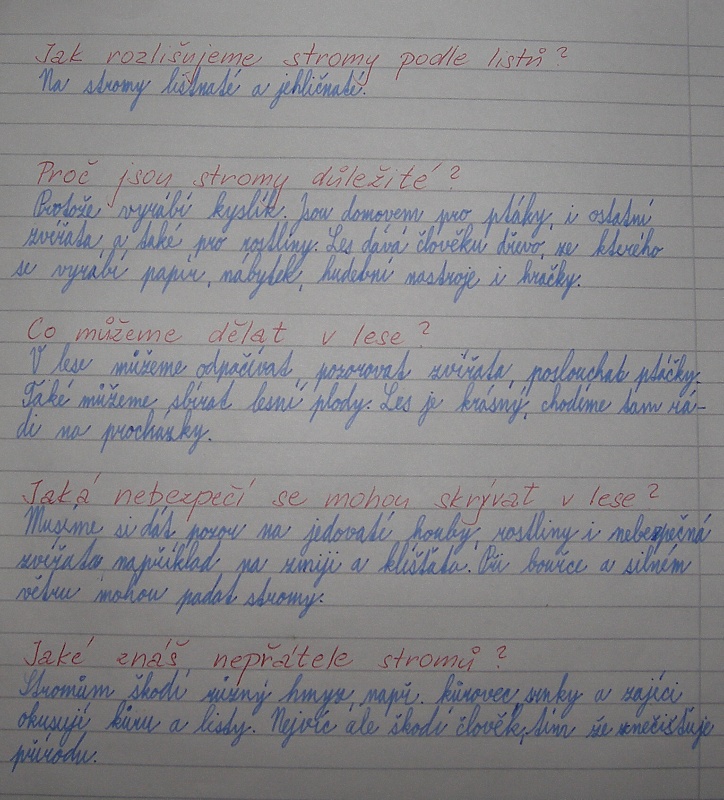 Jak rozlišujeme stromy podle listů?
Na stromy listnaté a jehličnaté.
Proč jsou stromy důležité?
Protože vyrábí kyslík. Jsou domovem pro ptáky, i ostatní
zvířata, a také pro rostliny. Les dává člověku dřevo, ze kterého
se vyrábí papír, nábytek, hudební nastroje i hračky.
Co můžeme dělat v lese?
V lese můžeme odpočívat, pozorovat zvířata, poslouchat ptáčky.
Také můžeme sbírat lesní plody. Les je krásný, chodíme tam rá-
di na procházky.
Jaká nebezpečí se mohou skrývat v lese?
Musíme si dát pozor na jedovatí houby, rostliny i nebezpečná
zvířata například na zmiji a klíšťata. Při bouřce a silném
větru mohou padat stromy.
Jaké znáš nepřátele stromů?
Stromům škodí různý hmyz, např. kůrovec, srnky a zajíci
okusují kůru a listy. Nejvíc ale škodí člověk, tím že znečišťuje
přírodu.